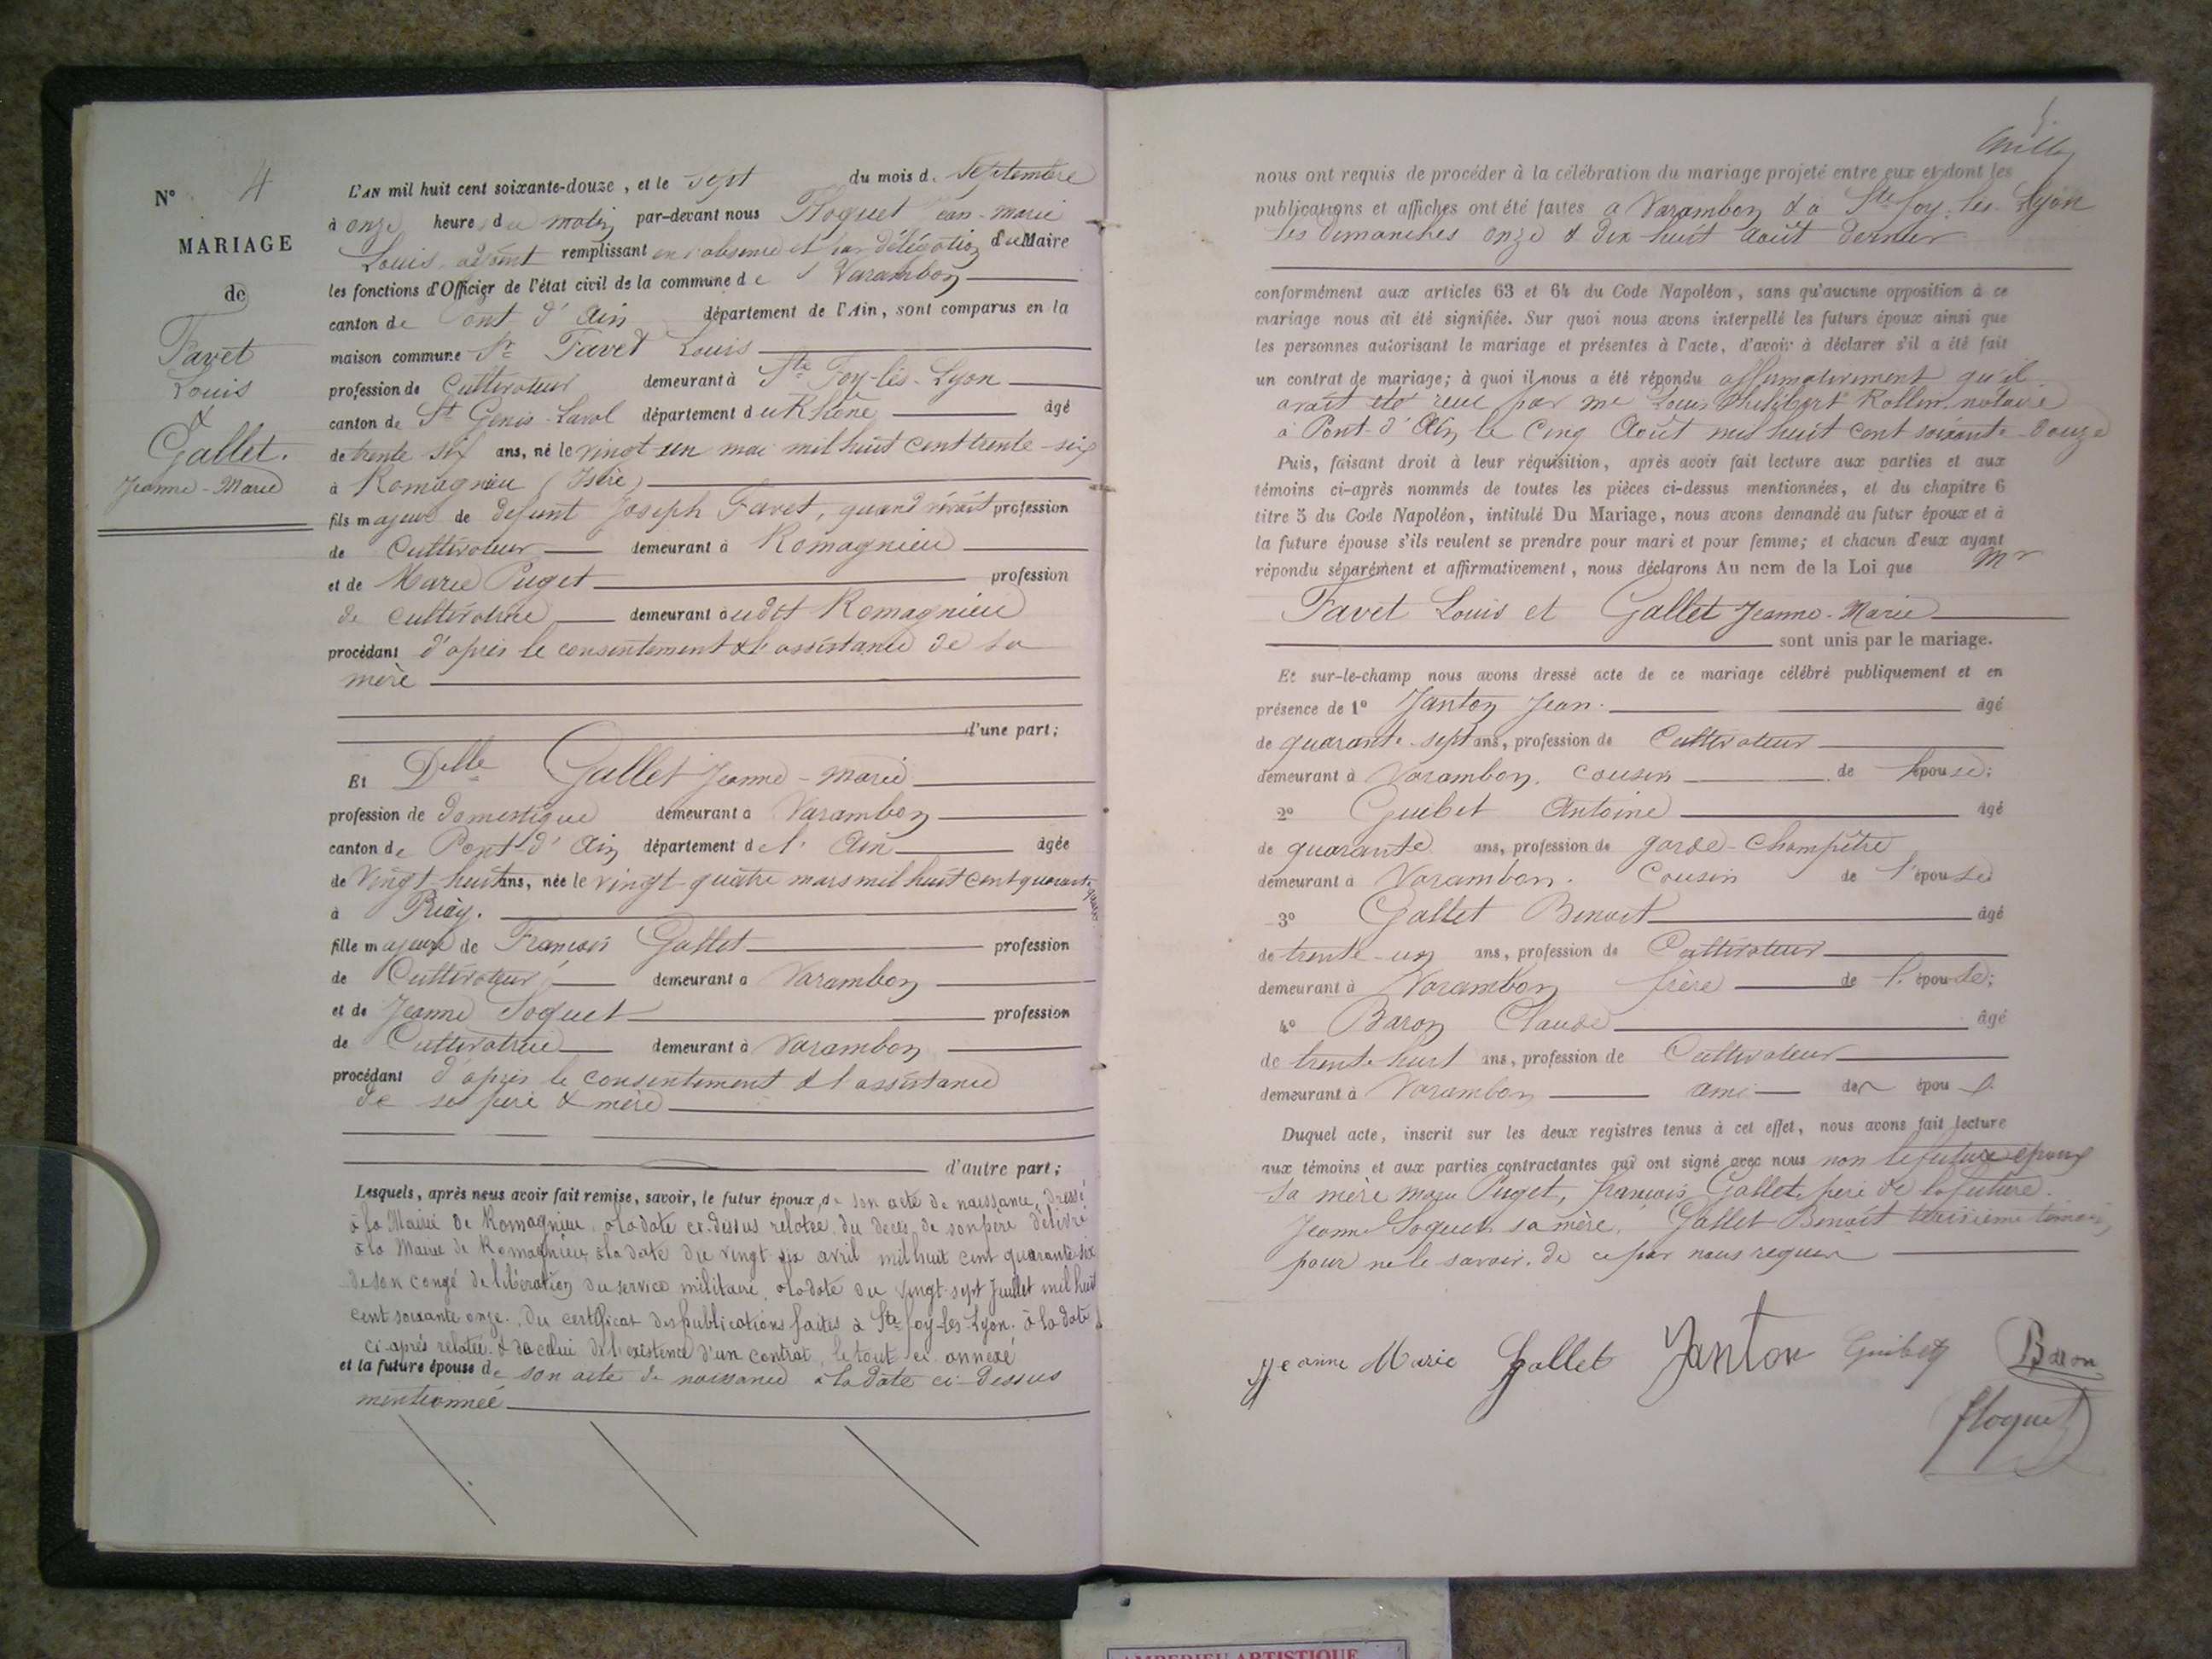 N° 4
MARIAGE
de
Favet
Louis
&
Gallet.
Jeanne-Marie
L'AN mil huit cent soixante-douze, et le sept du mois de Septembre
à onze heures du matin par-devant nous Floquet Jean-Marie
Louis, adjoint remplissant en l'absence et par délégation du Maire
les fonctions d'Officier de l'état civil de la commune de Varambon
canton de Pont d'Ain département de l'Ain, sont comparus en la
maison commune Sr Favet Louis
profession de Cultivateur demeurant à Ste Foy-lès-Lyon
canton de St Genis-Laval département du Rhône âgé
de trente six ans, né le vingt un mai mil huit cent trente-six
à Romagnieu (Isère)
fils majeur de defunt Joseph Favet, quand vivait profession
de Cultivateur demeurant à Romagnieu
et de Marie Puget profession
de cultivatrice demeurant audit Romagnieu
procédant d'après le consentement & l'assistance de sa
mère
d'une part;
Et Delle Gallet Jeanne-Marie
profession de domestique demeurant à Varambon
canton de Pont-d'Ain département de l'Ain âgée
de vingt huit ans, née le vingt quatre mars mil huit cent quarante quatre
à Priay.
fille majeure de François Gallet profession
de Cultivateur demeurant à Varambon
et de Jeanne Soquet profession
de Cultivatrice demeurant à Varambon
procédant d'après le consentement & l'assistance
de ses père & mère
d'autre part;
Lesquels, après nous avoir fait remise, savoir, le futur époux, de son acte de naissance, dressé
à la Mairie de Romagnieu, à la date ci-dessus relatée, du décès de son père délivré
à la Mairie de Romagnieu, à la date du vingt six avril mil huit cent quarante six
de son congé de libération du service militaire, à la date du vingt-sept Juillet mil huit
cent soixante onze. Du certificat des publications faites à Ste foy-les-Lyon. à la date
ci-après relatée & de celui de l'existence d'un contrat, le tout ci-annexé
et la future épouse de son acte de naissance à la date ci-dessus
mentionnée
nous ont requis de procéder à la célébration du mariage projeté entre eux et dont les
publications et affiches ont été faites à Varambon & à Ste foy-les-Lyon
les Dimanches onze & dix huit Août dernier
conformément aux articles 63 et 64 du Code Napoléon, sans qu'aucune opposition à ce
mariage nous ait été signifiée. Sur quoi nous avons interpellé les futurs époux ainsi que
les personnes autorisant le mariage et présentes à l'acte, d'avoir à déclarer s'il a été fait
un contrat de mariage; à quoi il nous a été répondu affirmativement qu'il
avait été reçu par me Louis Philibert Rollin notaire
à Pont-d'Ain le Cinq Août mil huit cent soixante-douze
Puis, faisant droit à leur réquisition, après avoir fait lecture aux parties et aux
témoins ci-après nommés de toutes les pièces ci-dessus mentionnées, et du chapitre 6
titre 5 du Code Napoléon, intitulé Du Mariage, nous avons demandé au futur époux et à
la future épouse s'ils veulent se prendre pour mari et pour femme; et chacun d'eux ayant
répondu séparément et affirmativement, nous déclarons Au nom de la Loi que Mr
Favet Louis et Gallet Jeanne-Marie
sont unis par le mariage.
Et sur-le-champ nous avons dressé acte de ce mariage célébré publiquement et en
présence de 1° Janton Jean. âgé
de quarante-sept ans, profession de Cultivateur
demeurant à Varambon. cousin de l'épouse;
2° Guibet Antoine âgé
de quarante ans, profession de garde-Champêtre
demeurant à Varambon. Cousin de l'épouse
3° Gallet Benoit âgé
de trente-un ans, profession de Cultivateur
demeurant à Varambon frère de l'épouse;
4° Baron Claude âgé
de trente huit ans, profession de Cultivateur
demeurant à Varambon ami des épou
Duquel acte, inscrit sur les deux registres tenus à cet effet, nous avons fait lecture
aux témoins et aux parties contractantes qui ont signé avec nous non le futur époux
sa mère Marie Puget, françois Gallet père de la future.
Jeanne Soquet sa mère, Gallet Benoit troisième témoin
pour ne le savoir. de ce par nous requis
Jeanne Marie Gallet Janton Guibet Baron
floquet
AMBERIEU ARTISTIQUE